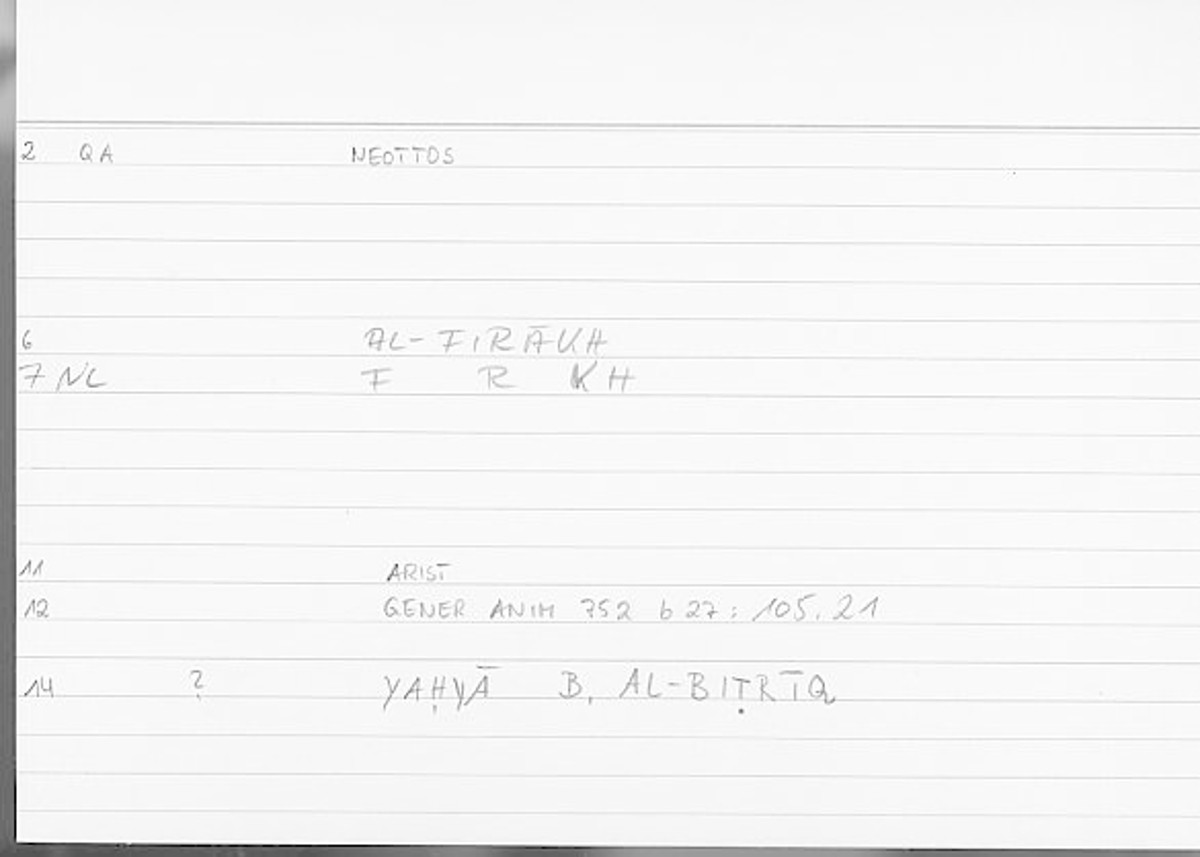 2 QA NEOTTOS
6 AL-FIRĀKH
7 NL F R KH
11 ARIST
12 GENER ANIM 752 b 27: 105.21
14 ? YAḤYĀ B. AL-BIṬRĪQ